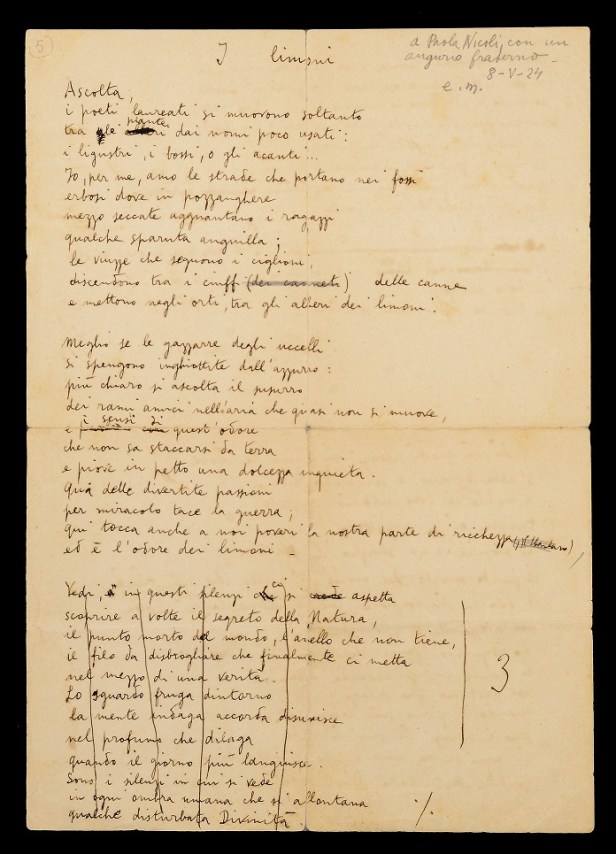 5
I limoni
a Paola Nicoli, con un
augurio fraterno -
8-V-24
e. m.
Ascolta,
i poeti laureati si muovono soltanto
tra le piante dai nomi poco usati:
i ligustri, i bossi, o gli acanti...
Io, per me, amo le strade che portano nei fossi
erbosi dove in pozzanghere
mezzo seccate agguantano i ragazzi
qualche sparuta anguilla;
le viuzze che seguono i ciglioni,
discendono tra i ciuffi (dei canneti) delle canne
e mettono negli orti, tra gli alberi dei limoni.
Meglio se le gazzarre degli uccelli
si spengono inghiottite dall'azzurro:
più chiaro si ascolta il susurro
dei rami amici nell'aria che quasi non si muove,
e i sensi di quest'odore
che non sa staccarsi da terra
e piove in petto una dolcezza inquieta.
Quà delle divertite passioni
per miracolo tace la guerra;
qui tocca anche a noi poveri la nostra parte di ricchezza,
ed è l'odore dei limoni -
Vedi, in questi silenzi in cui si aspetta
scoprire a volte il segreto della Natura,
il punto morto del mondo, l'anello che non tiene,
il filo da disbrogliare che finalmente ci metta
nel mezzo di una verità.
Lo sguardo fruga dintorno
la mente indaga accorda disunisce
nel profumo che dilaga
quando il giorno più languisce.
Sono i silenzi in cui si vede
in ogni ombra umana che si allontana
qualche disturbata Divinità.
3
./.